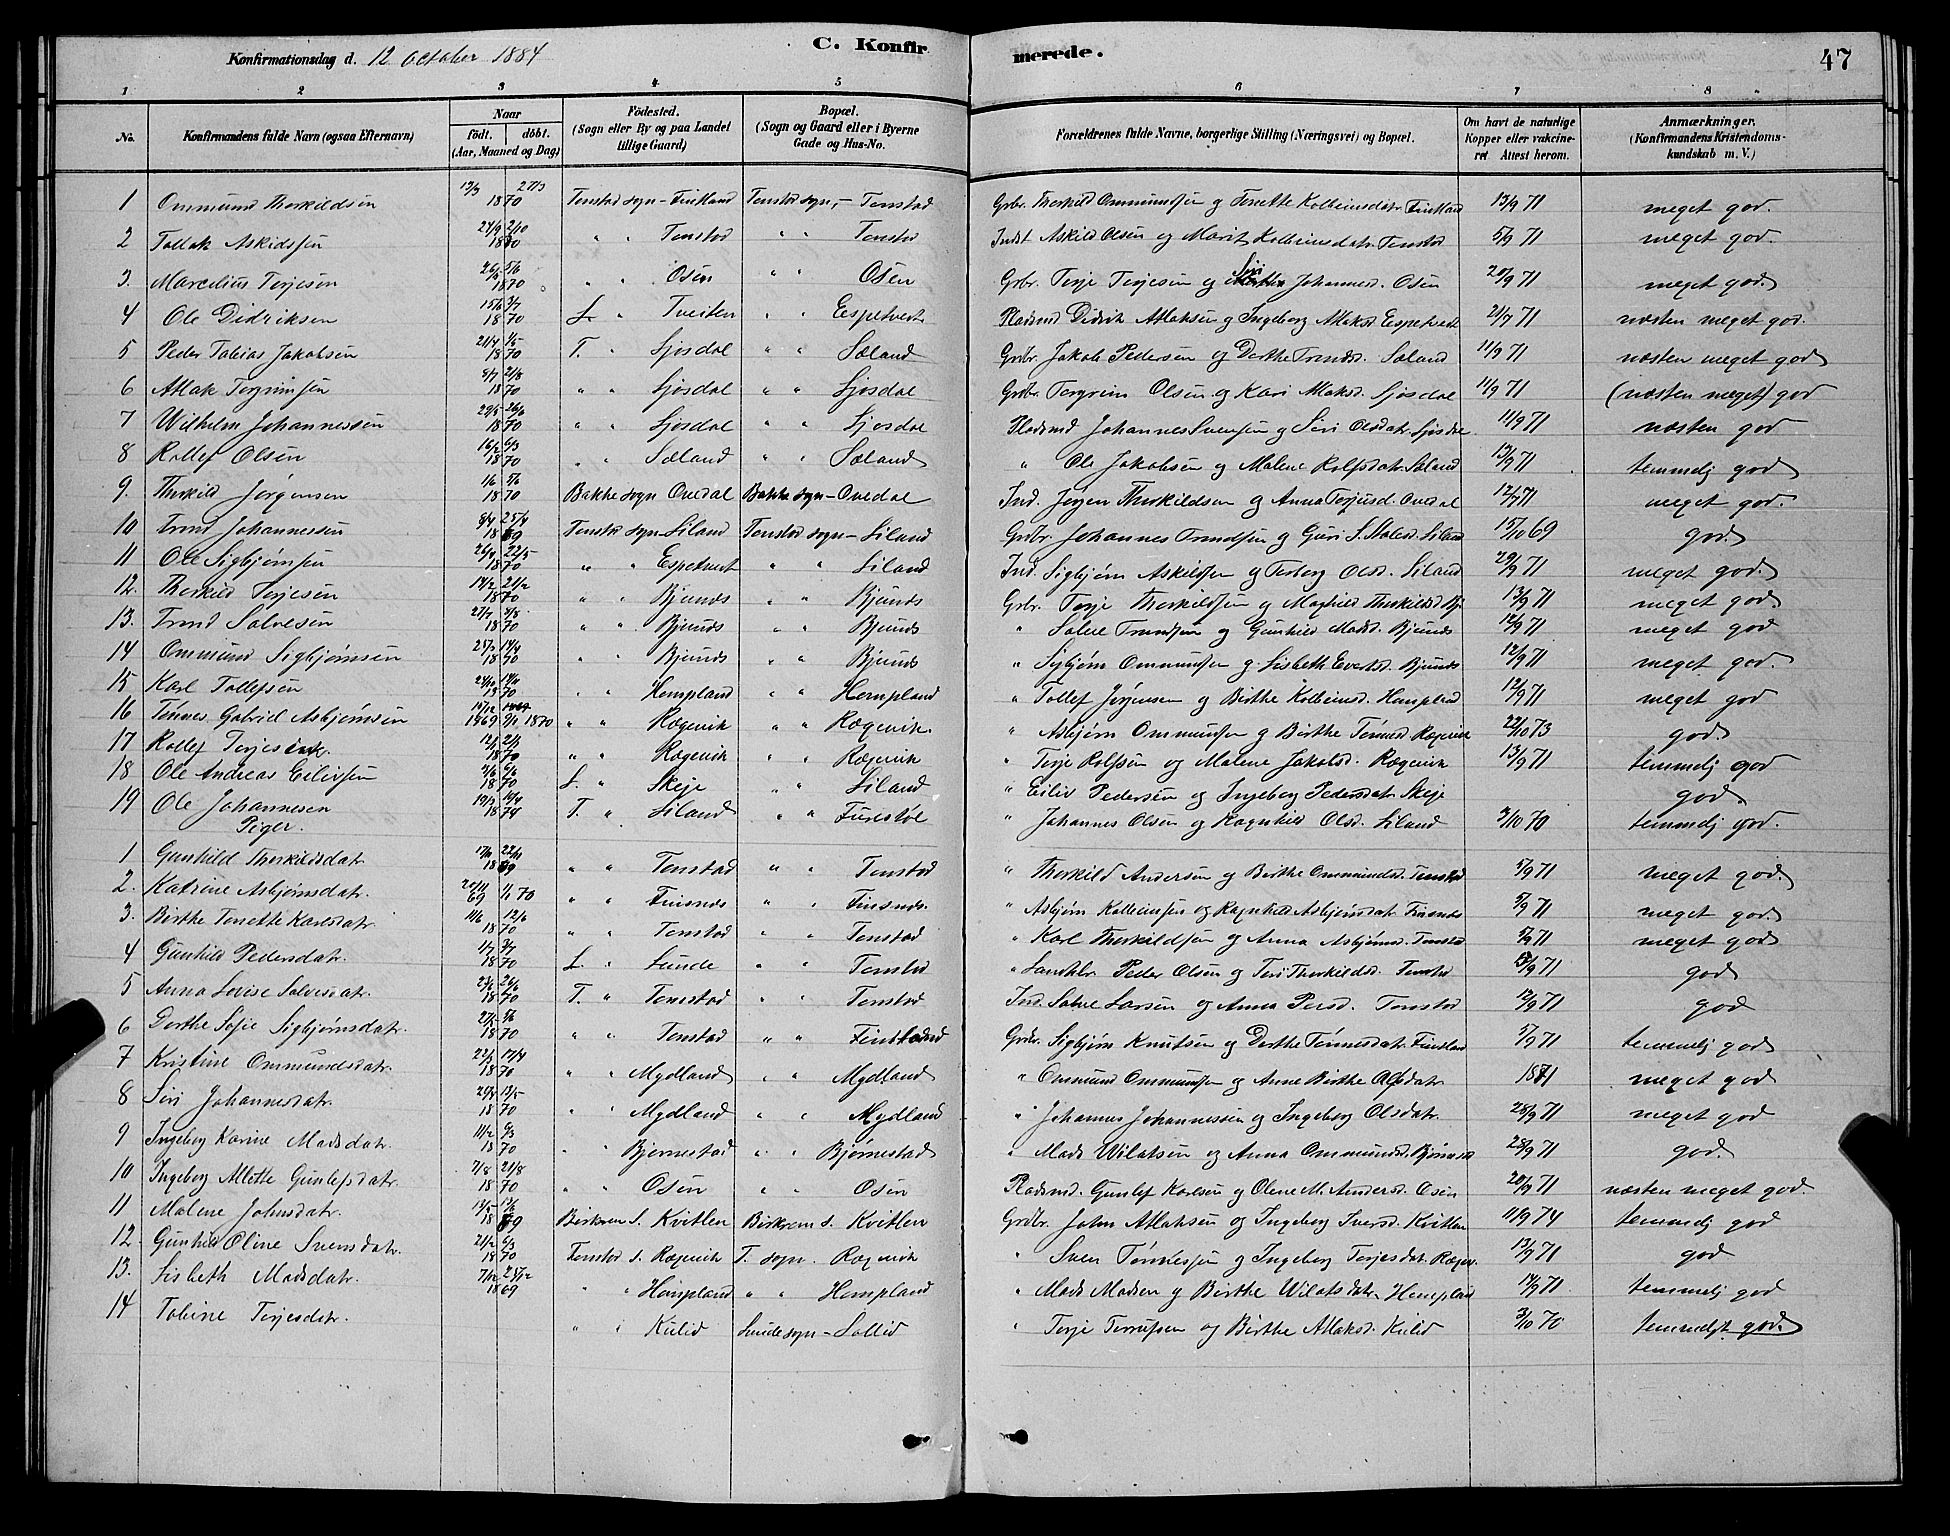 Konfirmationsdag d. 12 October 1884
C. Konfirmerede.
47
1 2 3 4 5 6 7 8
No. Konfirmandens fulde Navn (ogsaa Efternavn) Naar födt. döbt. (Aar, Maaned og Dag) Födested. (Sogn eller By og paa Landet tillige Gaard) Bopæl. (Sogn og Gaard eller i Byerne Gade og Hus-No. Forældrenes fulde Navne, borgerlige Stilling (Næringsvei) og Bopæl. Om havt de naturlige Kopper eller vakcineret Attest herom. Anmærkninger. (Konfirmandens Kristendomskundskab m. V.)
1 Ommund Therkildsen 1870 27/3 Tonstad sogn - Fintland Tonstad sogn, - Tonstad Grbr. Therkild Ommundsen og Tonette Kolbeinsdatr. Fintland 13/9 71 meget god.
2 Tollak Askildsen 1870 2/10 " " Tonstad " " Tonstad Indst Askild Olsen og Marit Kolbeinsdatr. Tonstad 5/9 71 meget god.
3. Marcelius Terjesen 1870 5/6 " " Osen " " Osen Grbr. Terje Terjesen og Siri Johannesd. Osen 20/9 71 meget god.
4 Ole Didriksen 15/6 3/7 1870 L " Tveiten " " Espetvedt Pladsmd Didrik Atlaksen og Ingeborg Atlaksd Espetvedt 21/9 71 næsten meget god.
5 Peder Tobias Jakobsen 21/4 1/5 1870 T. " Sjosdal " " Sæland Grbr. Jakob Pedersen og Dorthe Trondsd. Sæland 11/9 71 næsten meget god
6 Atlak Torgrimsen 21/8 1870 " " Sjosdal " " Sjosdal Grdbr. Torgrim Olsen og Kari Atlaksd. Sjosdal 11/9 71 (næsten meget) god
7 Wilhelm Johannessen 29/5 26/6 1870 " " Sjosdal " " Sjosdal Pladsmd Johannes Svensen og Siri Olsdatr. Sjosdal 11/9 71 næsten god
8 Rollef Olsen 16/2 6/3 1870 " " Sæland " " Sæland " Ole Jakobsen og Malene Rolfsdatr. Sæland 13/9 71 temmelj god
9. Therkild Jørgensen 1/6 5/6 1870 Bakke sogn Ovedal Bakke sogn - Ovedal Ind. Jørgen Therkildsen og Anna Terjesd. Ovedal 12/9 71 meget god.
10 Trond Johannessen 25/4 1869 Tonstad sogn Liland Tonstad sogn - Liland Grbr. Johannes Trondsen og Guri S. Liland 15/10 69 god.
11 Ole Sigbjørnsen 26/4 22/5 1870 " " Espetvedt " " Liland Ind. Sigbjørn Askildsen og Torborg Olsd. Liland 29/9 71 meget god.
12. Therkild Terjesen 14/2 21/2 1870 " " Bjunds " " Bjunds Grbr. Terje Therkildsen og Maghild Therkildsd Bj 13/9 71 meget god
13. Trond Salvesen 27/7 4/8 1870 " " Bjunds " " Bjunds " Salve Trondsen og Gunhild Madsd. Bjunds 12/9 71 meget god
14 Ommund Sigbjørnsen 1870 " " Bjunds " " Bjunds " Sigbjørn Ommundsen og Lisbeth Evertsd. Bjunds 12/9 71 meget god.
15 Karl Tollefsen 1870 " " Hompland " " Hompland " Tollef Jørgensen og Birthe Kolbeinsd. Hompland 12/9 71 meget god
16 Tønnes Gabriel Asbjørnsen 1869 1870 " " Rægevik " " Rægevik. " Asbjørn Ommundsen og Birthe Tønnesd Rægevik 22/10 73 god
17 Rollef Terjesen. 1870 " " Rægevik " " Rægevik " Terje Rolfsen og Malene Jakobsd. Rægevik 13/9 71 temmelj god
18 Ole Andreas Eilivsen 1870 L. " Skeje " " Liland " Eiliv Pedersen og Ingeborg Pedersdatr Skeje god.
19 Ole Johannesen 19/3 T. " Liland " " Furestøl " Johannes Olsen og Ragnhild Olsd. Liland 3/10 70 temmelj god.
Piger.
1 Gunhild Therkildsdatr. 1869 " " Tonstad " " Tonstad " Therkild Andersen og Birthe Ommundsd. Tonstad 5/9 71 meget god.
2. Katrine Asbjørnsdatr. 20/11 69 1/1 70 " " Finsnes " " Finsnes. " Asbjørn Kolbeinsen og Ragnhild Asbjørnsdatr Finsnes 5/9 71 meget god
3. Birthe Tonette Karlsdatr. 12/6 1870 " " Tonstad " " Tonstad " Karl Therkildsen og Anna Asbjørnsd. Tonstad 5/9 71 meget god
4 Gunhild Pedersdatr. 1/7 3/7 1870 L. " Lunde " " Tonstad " Landhbr Peder Olsen og Teri Therkildsd. Tonstad 13/9 71 god
5 Anna Lovise Salvesdatr. 26/6 1870 T. " Tonstad " " Tonstad Ind. Salve Larsen og Anna Persd. Tonstad 12/9 71 god
6 Dorthe Sofie Sigbjørnsdatr. 1870 " " Tonstad " " Fintland Grdbr. Sigbjørn Knutsen og Dorthe Tønnesdatr. Fintland 5/9 71 temmelj god
7 Kristine Ommundsdatr. 22/3 17/4 1870 " " Mydland " " Mydland " Ommund Ommundsen og Anne Birthe Olsdatr 1871 meget god
8 Siri Johannesdatr. 1870 " " Mydland " " Mydland " Johannes Johannessen og Ingeborg Olsdatr. 28/9 71 meget god
9 Ingeborg Karine Madsdatr. 11/2 6/3 1870 " " Bjørnestad " " Bjørnestad " Mads Wilatsen og Anna Ommundsd. Bjørnestad 28/9 71 god.
10 Ingeborg Atlette Gunlefsdatr. 7/8 21/8 1870 " " Osen " " Osen Pladsmd. Gunlef Karlsen og Olene M. Andersd. Osen 20/9 71 næsten meget god.
11 Malene Johnsdatr. 1869 Birkrem S. Kvitlen Birkrem s. Kvitlen Grdbr. John Atlaksen og Ingeborg Iversd. Kvitlen 11/9 74 temmelj god
12. Gunhild Oline Svensdatr. 21/2 6/3 1870 Tonstad S. Rægevik T. sogn. Rægevik " Sven Tønnessen og Ingeborg Terjesdatr. Rægev. 13/9 71 god
13. Lisbeth Madsdatr. 7/12 1869 " " Hompland " " Hompland " Mads Madsen og Birthe Wilatsdatr Hompland 71 temmelj god
14 Tobine Terjesdatr. " " Kulid Lunde sogn - Sollid " Terje Terrufsen og Birthe Atlaksd. Kulid 3/10 70 temmeligt god.